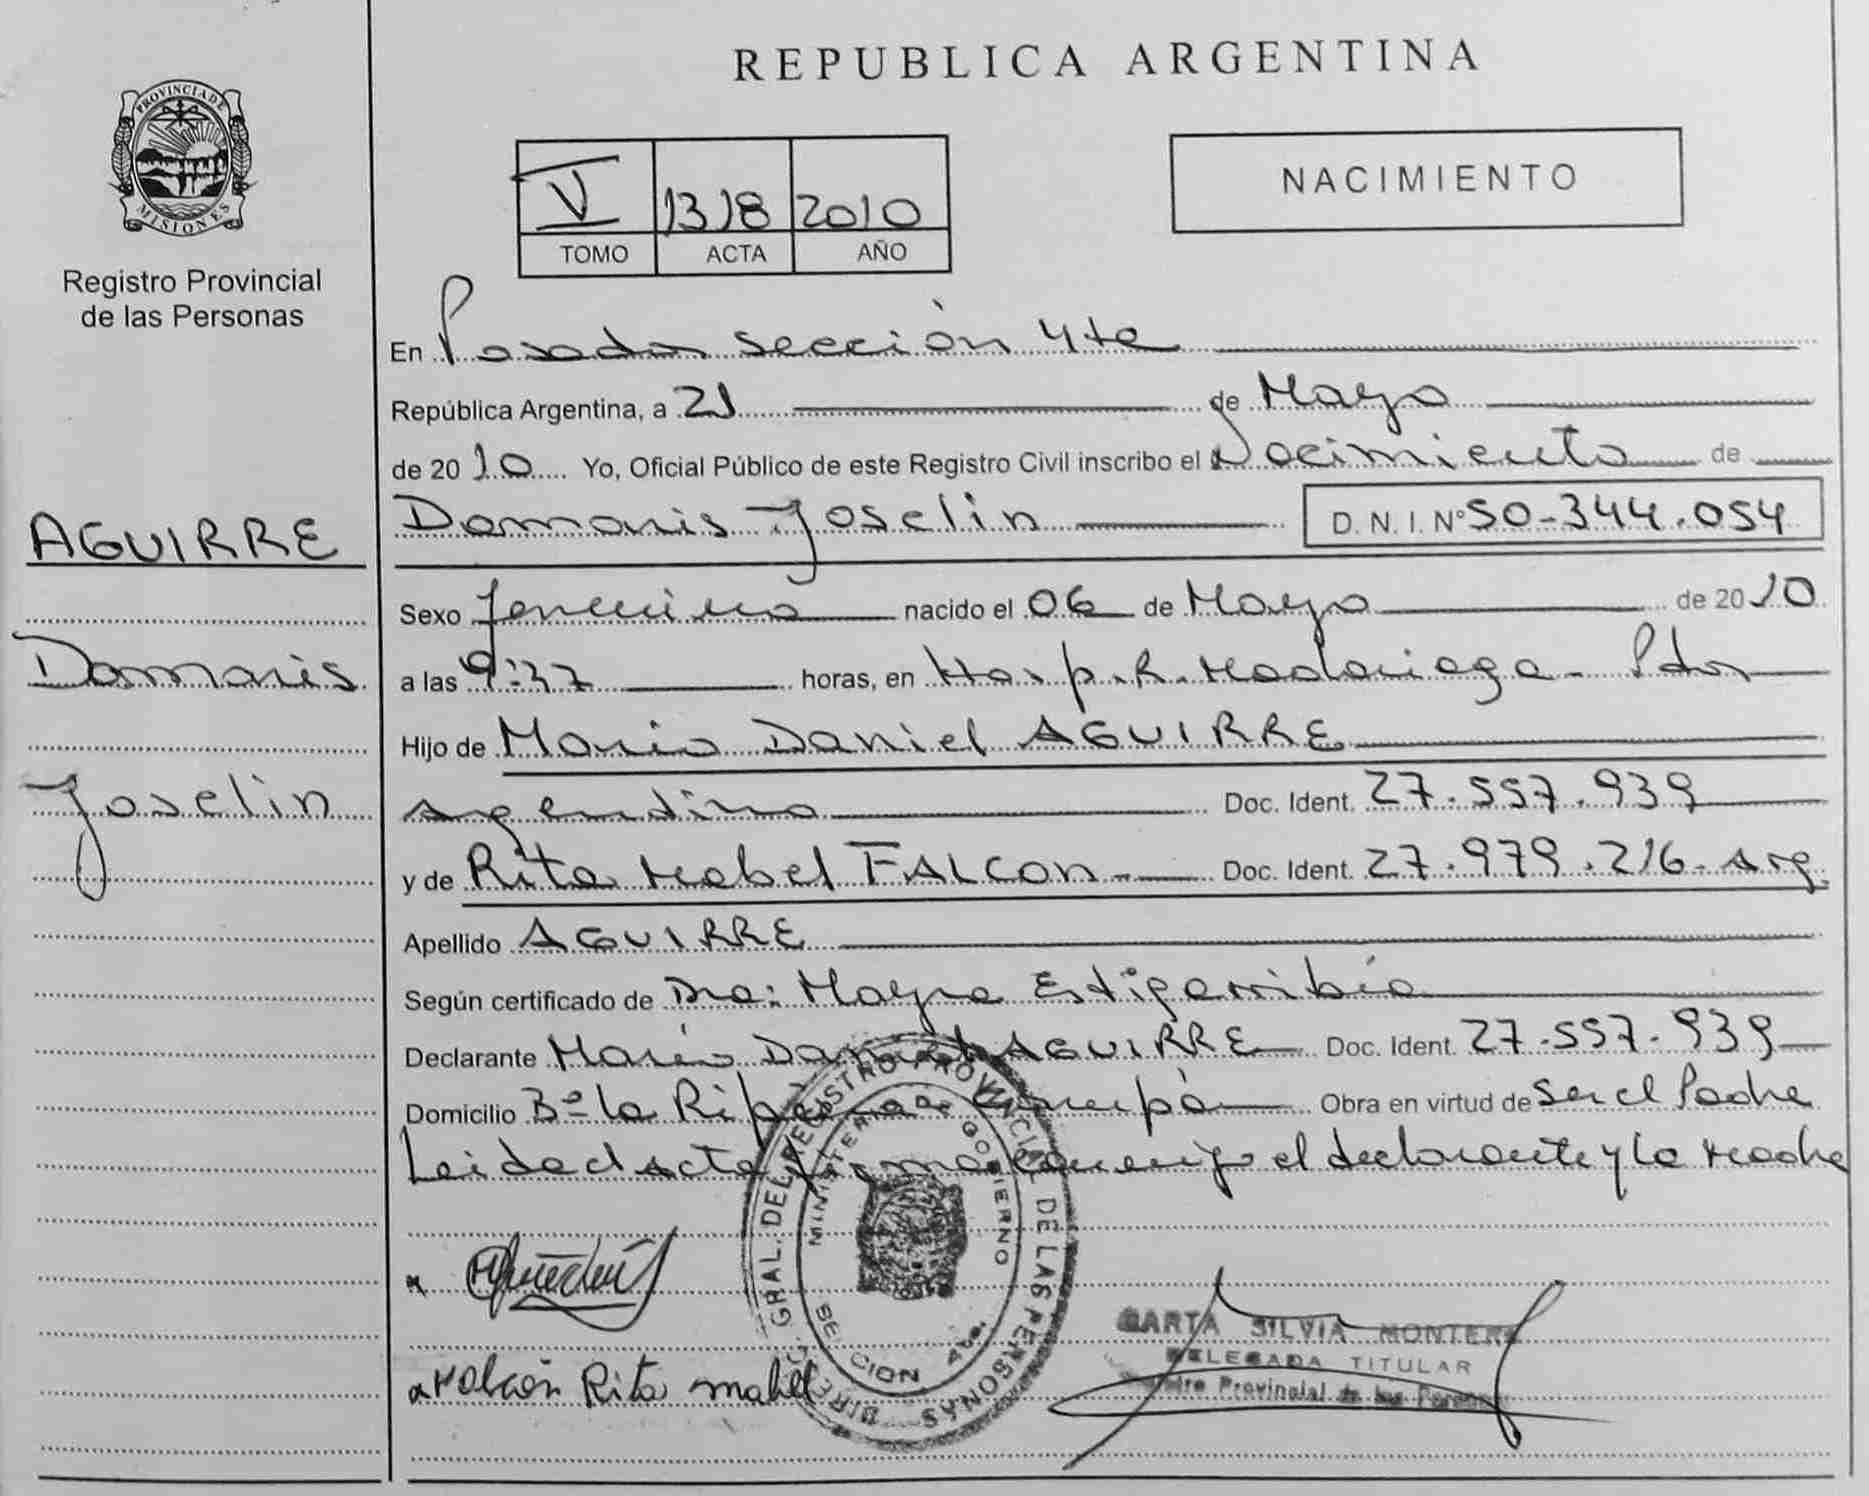 REPUBLICA ARGENTINA
PROVINCIA DE
MISIONES
Registro Provincial
de las Personas
V 1318 2010
TOMO ACTA AÑO
NACIMIENTO
En Posadas sección 4ta
República Argentina, a 21 de Mayo
de 2010 Yo, Oficial Público de este Registro Civil inscribo el Nacimiento de
AGUIRRE
Damaris
Joselin
Damaris Joselin D. N. I. Nº 50-344.054
Sexo femenino nacido el 06 de Mayo de 2010
a las 9:37 horas, en Hosp. R. Madariaga - Pdas
Hijo de Mario Daniel AGUIRRE
argentino Doc. Ident. 27.557.939
y de Rita Mabel FALCON Doc. Ident. 27.979.216 - Arg.
Apellido AGUIRRE
Según certificado de Dra: Mayra Estigarribia
Declarante Mario Daniel AGUIRRE Doc. Ident. 27.557.939
Domicilio Bº la Garupá Obra en virtud de Ser el Padre
Leida el Acta firma conmigo el declarante y la Madre
DIREC. GRAL. DEL REGISTRO PROVINCIAL DE LAS PERSONAS
MINISTERIO GOBIERNO
SECCION 4ta.
Falcón Rita mabel
SILVIA MONTERO
DELEGADA TITULAR
Registro Provincial de las Personas